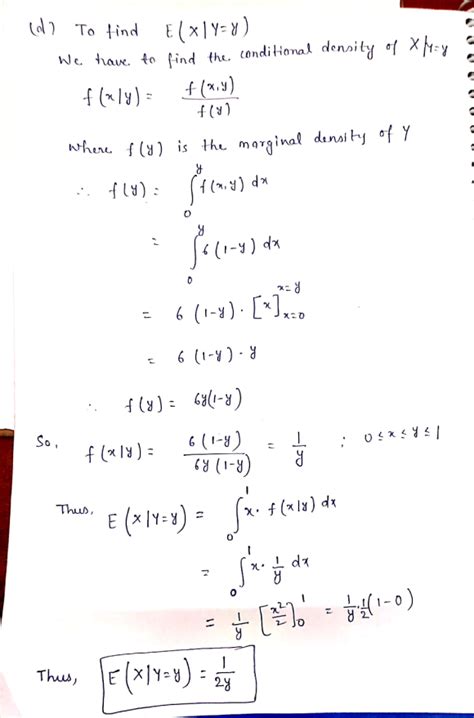 (d) To find E(X|Y=y)
We have to find the conditional density of X|Y=y
f(x|y) = f(x,y) / f(y)
Where f(y) is the marginal density of Y
∴ f(y) = ∫₀^y f(x,y) dx
= ∫₀^y 6(1-y) dx
= 6(1-y) · [x]_{x=0}^{x=y}
= 6(1-y) · y
∴ f(y) = 6y(1-y)
So, f(x|y) = 6(1-y) / 6y(1-y) = 1/y ; 0≤x≤y≤1
Thus, E(X|Y=y) = ∫₀^1 x · f(x|y) dx
= ∫₀^1 x · 1/y dx
= 1/y [x²/2]₀^1 = 1/y · 1/2 (1-0)
Thus, E(X|Y=y) = 1/2y